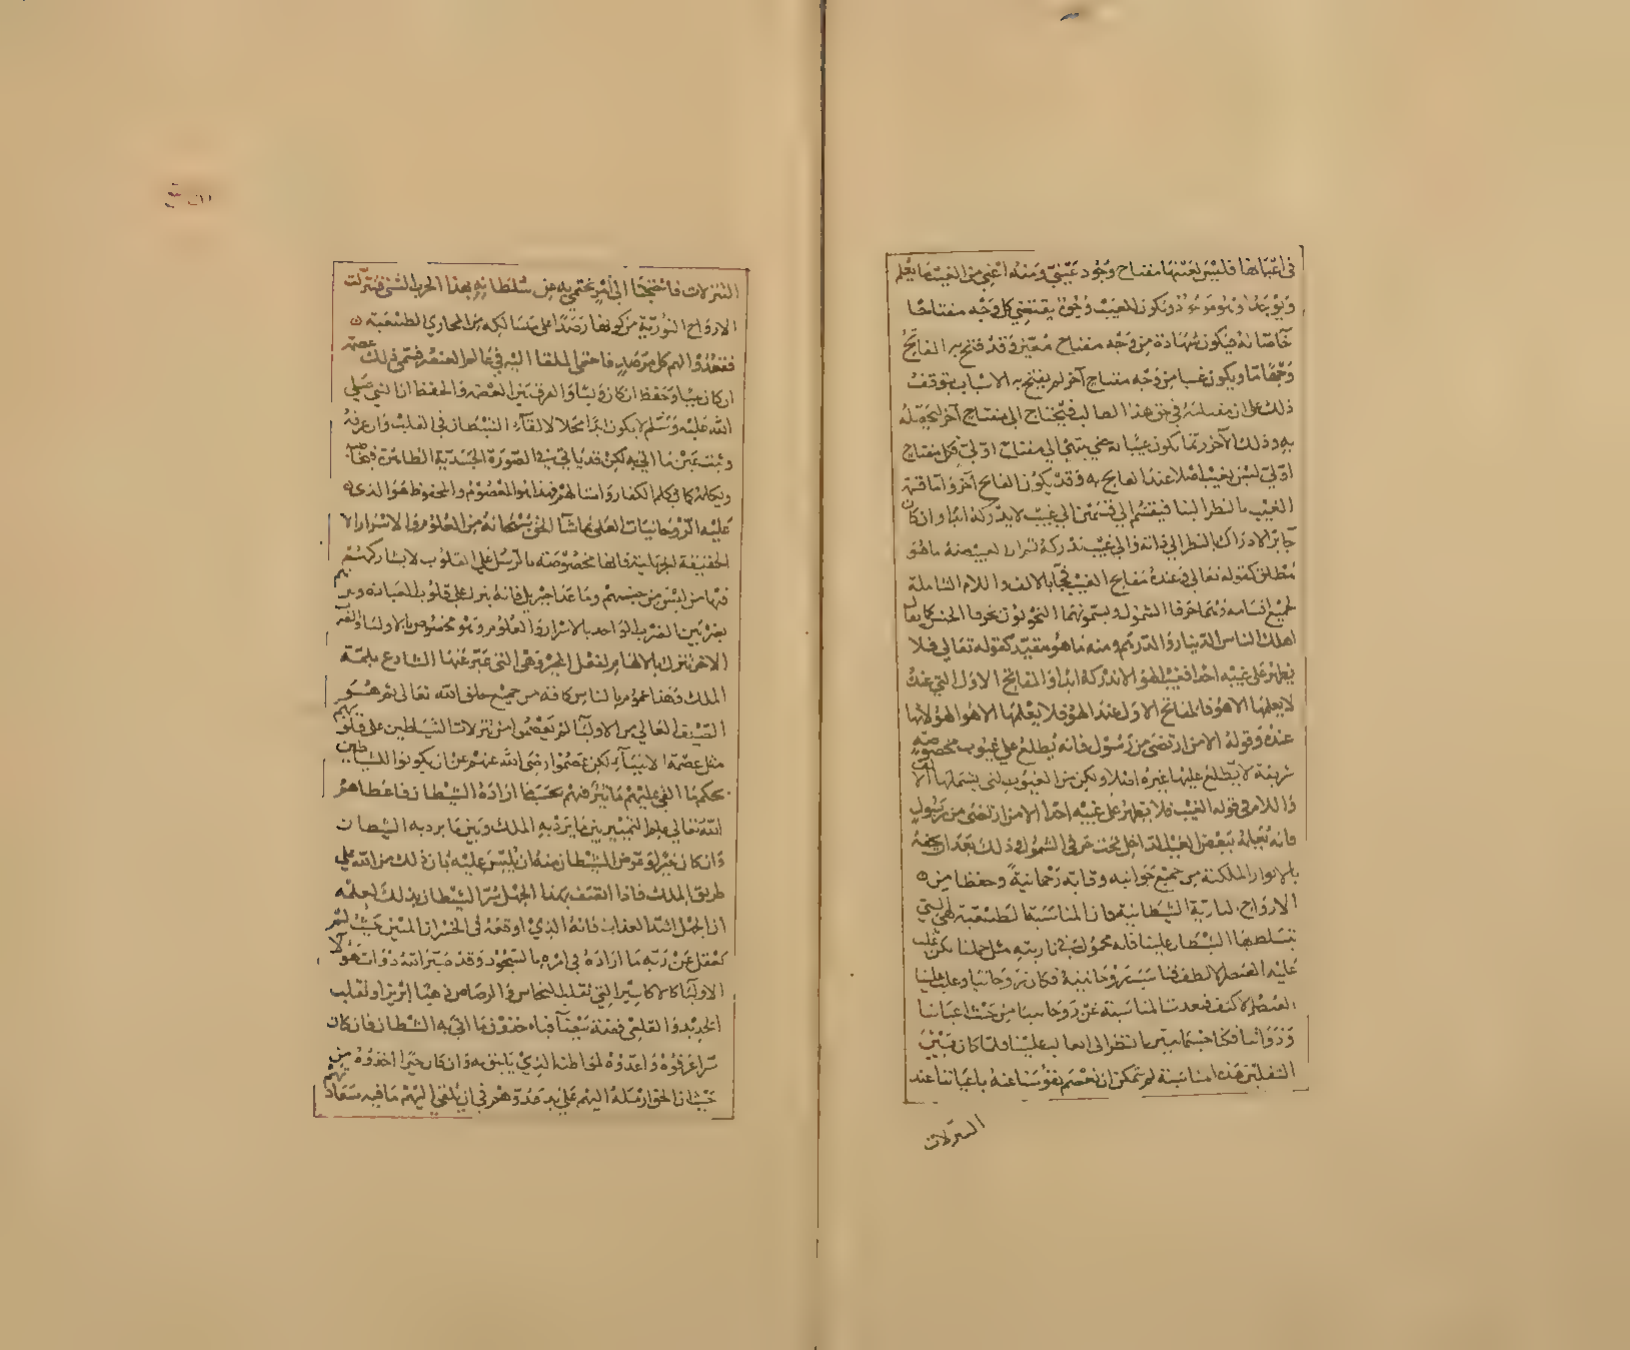 في اعيانها فليس لعينها مفتاح وجود عيني ومنه اعني من الغيب ما يعلم
ويوجد وهو موجود وتكون للغيب وجوه يقتضي كل وجه مفتاحا
خاصا له فيكون شهادة من وجه مفتاح معين وقد فتح به الفاتح
وجها ما ويكون غيبا من وجه مفتاح آخر لم يفتح به الاسباب توقف
ذلك على ان في حق هذا الطالب فيحتاج الى مفتاح آخر
به وذلك الآخر ربما يكون حتى ينتهي الى مفتاح اولي فكل مفتاح
اولي ليس بغيب اصلا عند الفاتح به وقد يكون الفاتح آخر واما قسمة
الغيب بالنظر الينا فينقسم الى قسمين الى غيب لا يدركه ابدا وان كان
جائز الادراك بالنظر الى ذاته والى غيب ندركه منه ما هو
مطلق كقوله تعالى وعنده مفاتح الغيب فجاء بالالف واللام الشاملة
لجميع اقسامه وهما حرفا الشمول ويسمونهما النحويون بحرفي الجنس كما يقال
اهلك الناس الدينار والدرهم ومنه ما هو مقيد كقوله تعالى فلا
يظهر على غيبه احدا فغيب الهو لا ندركه ابدا والمفاتح الاول التي عنده
لا يعلمها الا هو فالمفاتح الاول عند الهو فلا يعلمها الا هو الهو لانها
عنده وقوله الا من ارتضى من رسول فانه يطلع على غيوب مخصوصة
شريفة لا يطلع عليها غيره اصلا ولكن من الغيوب التي يشملها الالف
واللام في قوله الغيب فلا يظهر على غيبه احدا الا من ارتضى من رسول
فانه يعلمه ببعض الغيب الداخل تحت حرفي الشمول وذلك بعد ان يحفه
بالانوار الملكية من جميع جوانبه وقاية رحمانية وحفظا من
الارواح النارية الشيطانية فان المناسبة الطبيعية هي التي
تسلط بها الشيطان علينا فانه محمول في ناريته مثل حملنا لكن غلب
عليه العنصر الالطف فناسب روحانيته فكان روحانيا وغلب علينا
العنصر الاكثف فبعدت المناسبة عن روحانيتنا من حيث اعياننا
وذواتنا فكنا جسمانيين بالنظر الى الغالب علينا فلما كان بين
الثقلين هذه المناسبة لم يتمكن ان نعصم نفوسنا عنه باعياننا عند
التنزلات
التنزلات فاحتجنا الى امر نحتمي به من سلطانه بهذا الحرب فتنزلت
الارواح النورية من كونها رصدا على مسالكه من المجاري الطبيعية
فقعدوا لهم كل مرصد فاحتمى الملقا اليه في عالم العنصر فسمى ذلك عصمة
ان كان نبيا وحفظ ان كان وليا والفرق بين العصمة والحفظ ان النبي صلى
الله عليه وسلم لا يكون ابدا محلا لالقاء الشيطان في القلب وان عرفه
وثبت تميز ما اتى به لكن قد ياتي في الصورة الجسدية الظاهرة
ويكلمه كما يكلم الكفار وامثالهم فهذا هو المعصوم والمحفوظ هو الذي
عليه الروحانيات العلى بما شاء الحق سبحانه من العلوم والاسرار الا
الحقيقة الجبرئيلية فانها مخصوصة بالرسل على القلوب لا يشاركهم
فيها من ليس من جنسهم وما عدا جبريل فانه ينزل على قلوب العباد
بضربين الضرب الواحد بالاسرار والعلوم وهو مخصوص بالاولياء والضرب
الاخر ينزل بالالهام لفعل الخير وهي التي عبر عنها الشارع بلمة
الملك وهذا عموم بالناس كافة من جميع خلق الله تعالى ثم هنا
الصنف العالي من الاولياء لم يعصموا من تنزلات الشياطين على قلوبهم
مثل عصمة الانبياء لكن عصموا رضي الله عنهم عن ان يكونوا للشياطين
بحكم ما القي عليهم ما يثير منهم بحسب ما اراده الشيطان فاعطاهم
الله تعالى علم التمييز بين ما يرد به الملك وبين ما يرد به الشيطان
وان كان خير لو تعرض الشيطان منه ان يلبس عليه بان ذلك من الله على
طريق الملك فاذا اتصف بهذا الجهل سر الشيطان بذلك لعلمه
ان الجهل اشد العذاب فانه الذي اوقعه في الخسران المبين حيث لم
يعقل عن ربه ما اراده في امره بالسجود وقد صير الله ذوات هؤلاء
الاولياء كالاكاسير التي تقلب النحاس والرصاص ذهبا ابريزا وتقلب
الحديد والقلعي فضة بيضاء فهم يقلبون ما اتى به الشيطان فان كان
شرا عرفوه واعدوه لمواطنه الذي يليق به وان كان خيرا اخذوه من
حيث ان الحق ارسله اليهم على يد عدوهم في ان يلقي اليهم ما فيه سعادتهم